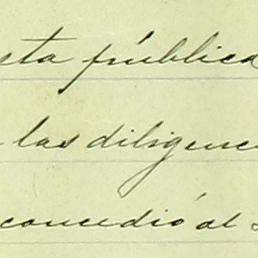 pública
las diligenc
concedió al